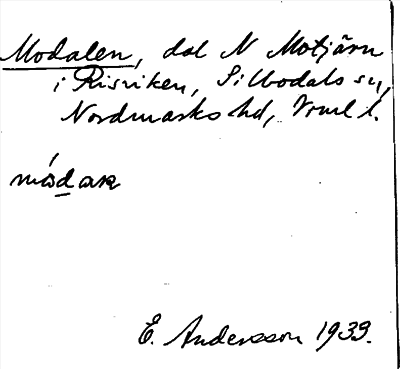 Modalen, dal N Motjärn
i Risviken, Silbodals sn,
Nordmarks hd, Vrml l.
E. Andersson 1939.